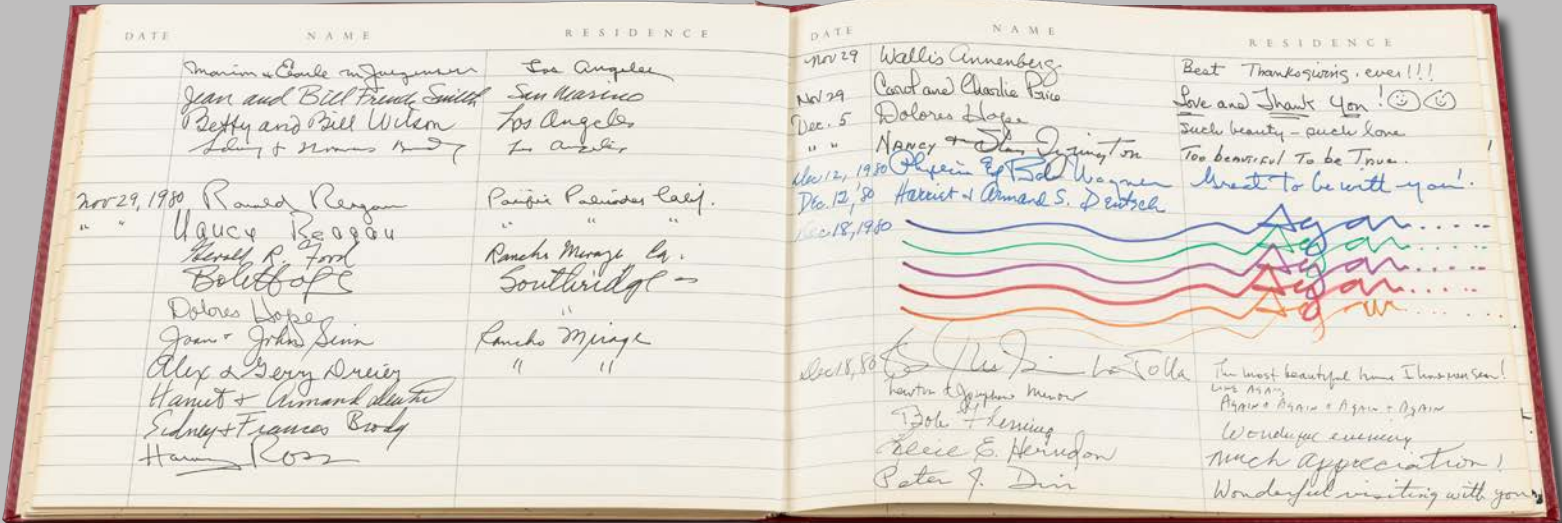 DATE NAME RESIDENCE
Marion & Earle M. Jorgensen Los Angeles
Jean and Bill French Smith San Marino
Betty and Bill Wilson Los Angeles
Los Angeles
Nov 29, 1980 Ronald Reagan Pacific Palisades Calif.
" " Nancy Reagan " "
Gerald R. Ford Rancho Mirage Ca.
Bob Hope Southridge
Dolores Hope "
Joan & John Sinn Rancho Mirage
Alex & Gerry Dreier " "
Harriet & Armand Deutsch
Sidney & Frances Brody
Ross
DATE NAME RESIDENCE
Nov 29 Wallis Annenberg Best Thanksgiving, ever!!!
Nov 29 Carol and Charlie Price Love and Thank You!
Dec. 5 Dolores Hope Such beauty – such love
" " Nancy & Too beautiful To be True.
Dec 12, 1980 Bob Wagner Great To be with you!
Dec. 12, '80 Harriet & Armand S. Deutsch
Dec 18, 1980 Again.....
Again.....
Again.....
Again.....
Again.....
Dec 18, 80 La Jolla The most beautiful home I have ever seen!
Newton & Josephine Minow Again + Again + Again + Again
Bob Fleming Wonderful evening
E. Herndon Much appreciation!
Peter J. Wonderful visiting with you